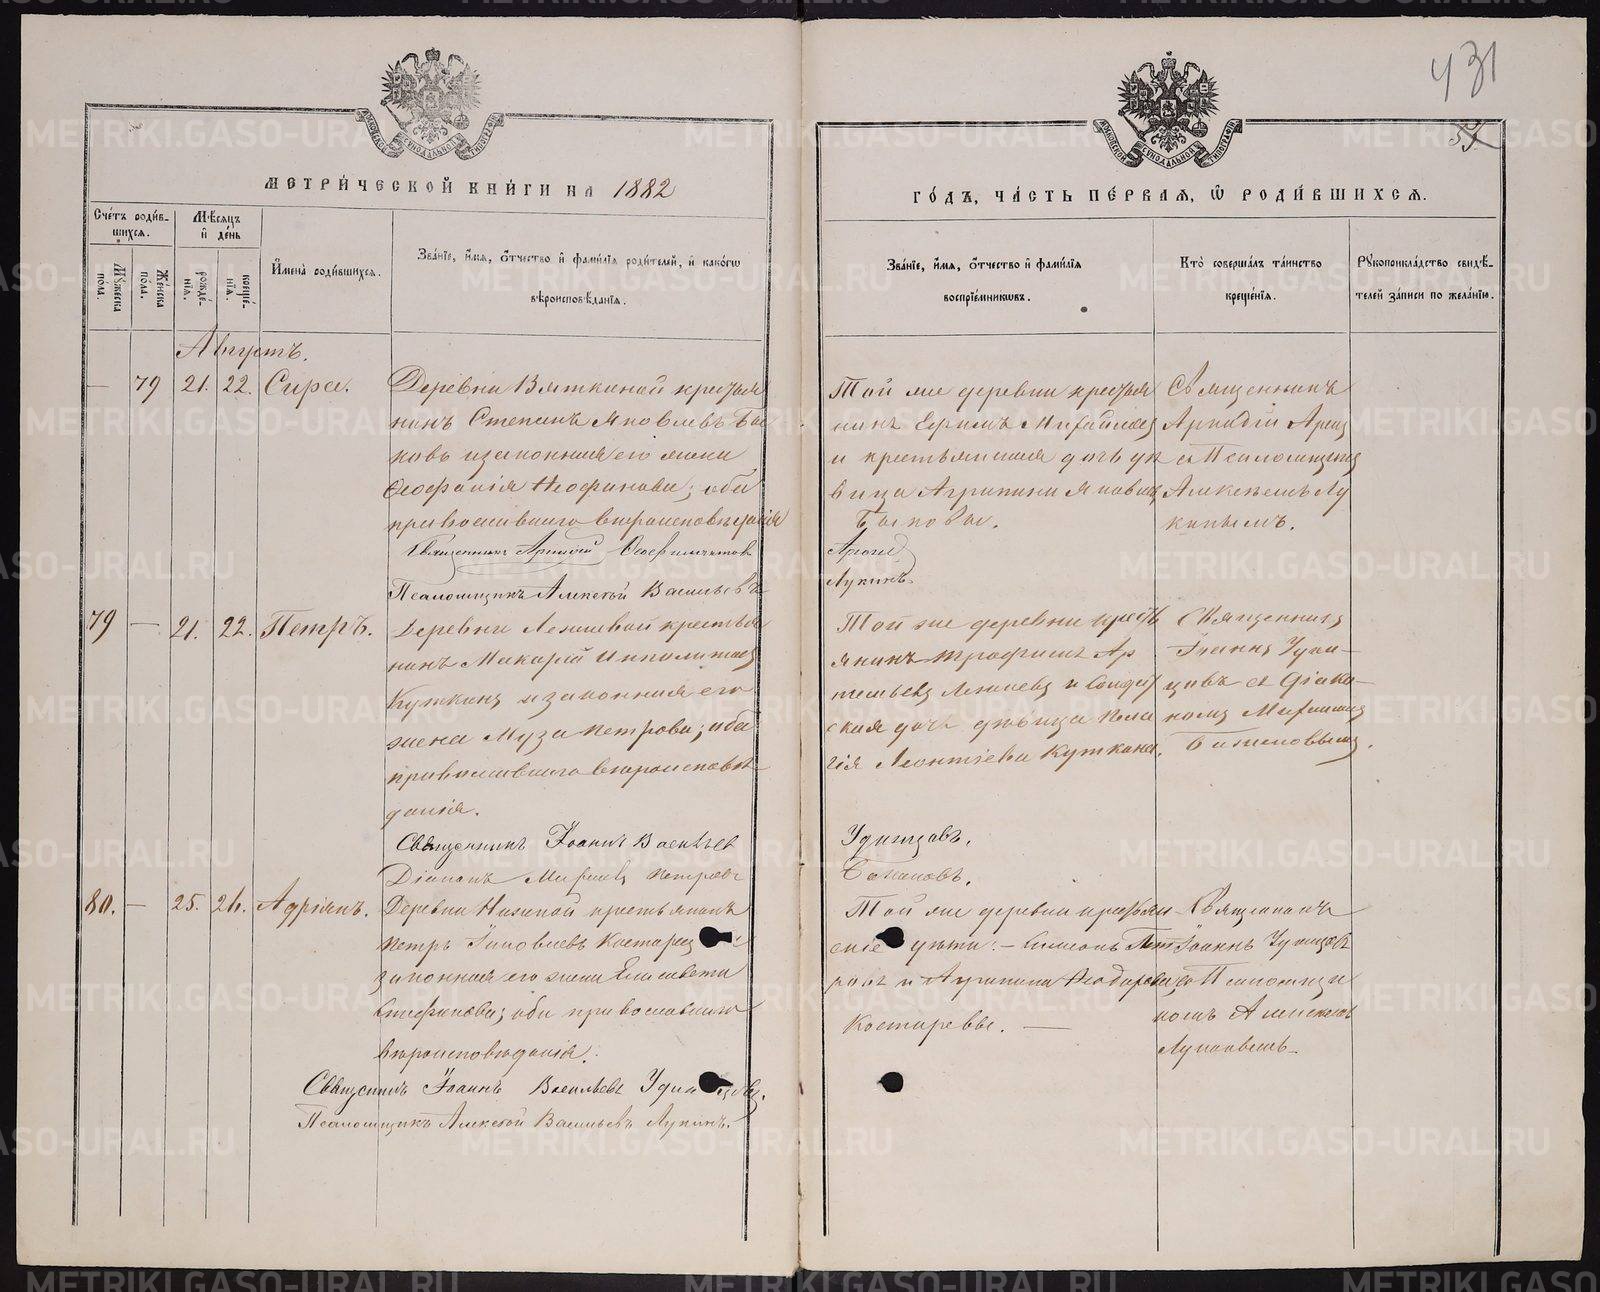 431
МЕТРИ́ЧЕСКОЙ КНИ́ГИ НА 1882
ГО́ДЪ, ЧА́СТЬ ПЕ́РВАЯ, Ѡ҆ РОДИ́ВШИХСЯ.
Сче́тъ роди́в-
шихся.
Му́жеска пола.
Же́нска пола.
Мѣ́сяцъ
и҆ де́нь
рожде́-
нїя.
креще́-
нїя.
И҆мена̀ роди́вшихся.
Зва́нїе, и҆́мя, ѻ҆́тчество и҆ фами́лїя роди́телей, и҆ како́гѡ
вѣроисповѣ́данїя.
Зва́нїе, и҆́мя, ѻ҆́тчество и҆ фами́лїя
воспрїе́мниковъ.
Кто̀ соверша́лъ та́инство
креще́нїя.
Рꙋкоприкла́дство свидѣ́-
телей за́писи по жела́нїю.
Августъ.
— 79 21. 22. Сира.
Деревни Вяткиной крестья
нинъ Стефанъ Яковлевъ Бы
ковъ и законная его жена
Ѳеофанія Неофитова; оба
православнаго вѣроисповѣданія
Священникъ Аркадій
Псаломщикъ Алексѣй Васильевъ
Той же деревни крестья
нинъ Ефимъ Михайловъ
и крестьянская дочь дѣ
вица Агрипина Яковлева
Быковы.
Лукинъ.
Священникъ
Аркадій
съ Псаломщикомъ
Алексѣемъ Лу
кинымъ.
79 — 21. 22. Петръ.
Деревни крестья
нинъ Макарій Ипполитовъ
Куткинъ и законная его
жена Муза Петрова; оба
православнаго вѣроисповѣ
данія.
Священникъ Іоаннъ Васильев
Діаконъ Михаилъ Петровъ
Той же деревни кресть
янинъ Трофимъ Ар
темьевъ и Солдат
ская дочь дѣвица Пела
гія Леонтіева Куткина.
Удинцовъ.
Священникъ
Іоаннъ Удин—
цовъ съ Діако—
номъ Михаиломъ
80. — 25. 26. Адріанъ.
Деревни Низкой крестьянинъ
Петръ Костарев и
законная его жена Елисавета
Стефанова; оба православнаго
вѣроисповѣданія.
Священникъ Іоаннъ Васильевъ Удинцовъ.
Псаломщикъ Алексѣй Васильевъ Лукинъ.
Той же деревни крестьян
скіе дѣти: — Симеонъ Пет
ровъ и Агрипина Ѳеодорова
Костаревы. —
Священникъ
Іоаннъ Удинцовъ
съ Псаломщи
комъ Алексѣемъ
METRIKI.GASO-URAL.RU